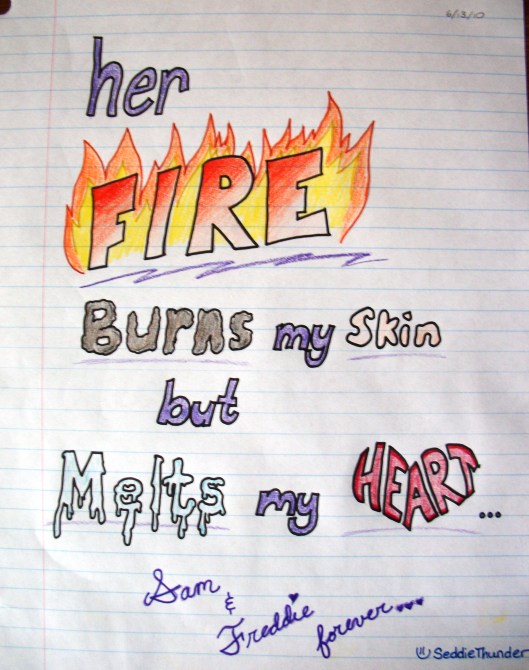 6/13/10
her
FIRE
Burns my Skin
but
Melts my HEART...
Sam
&
Freddie
forever...
SeddieThunder